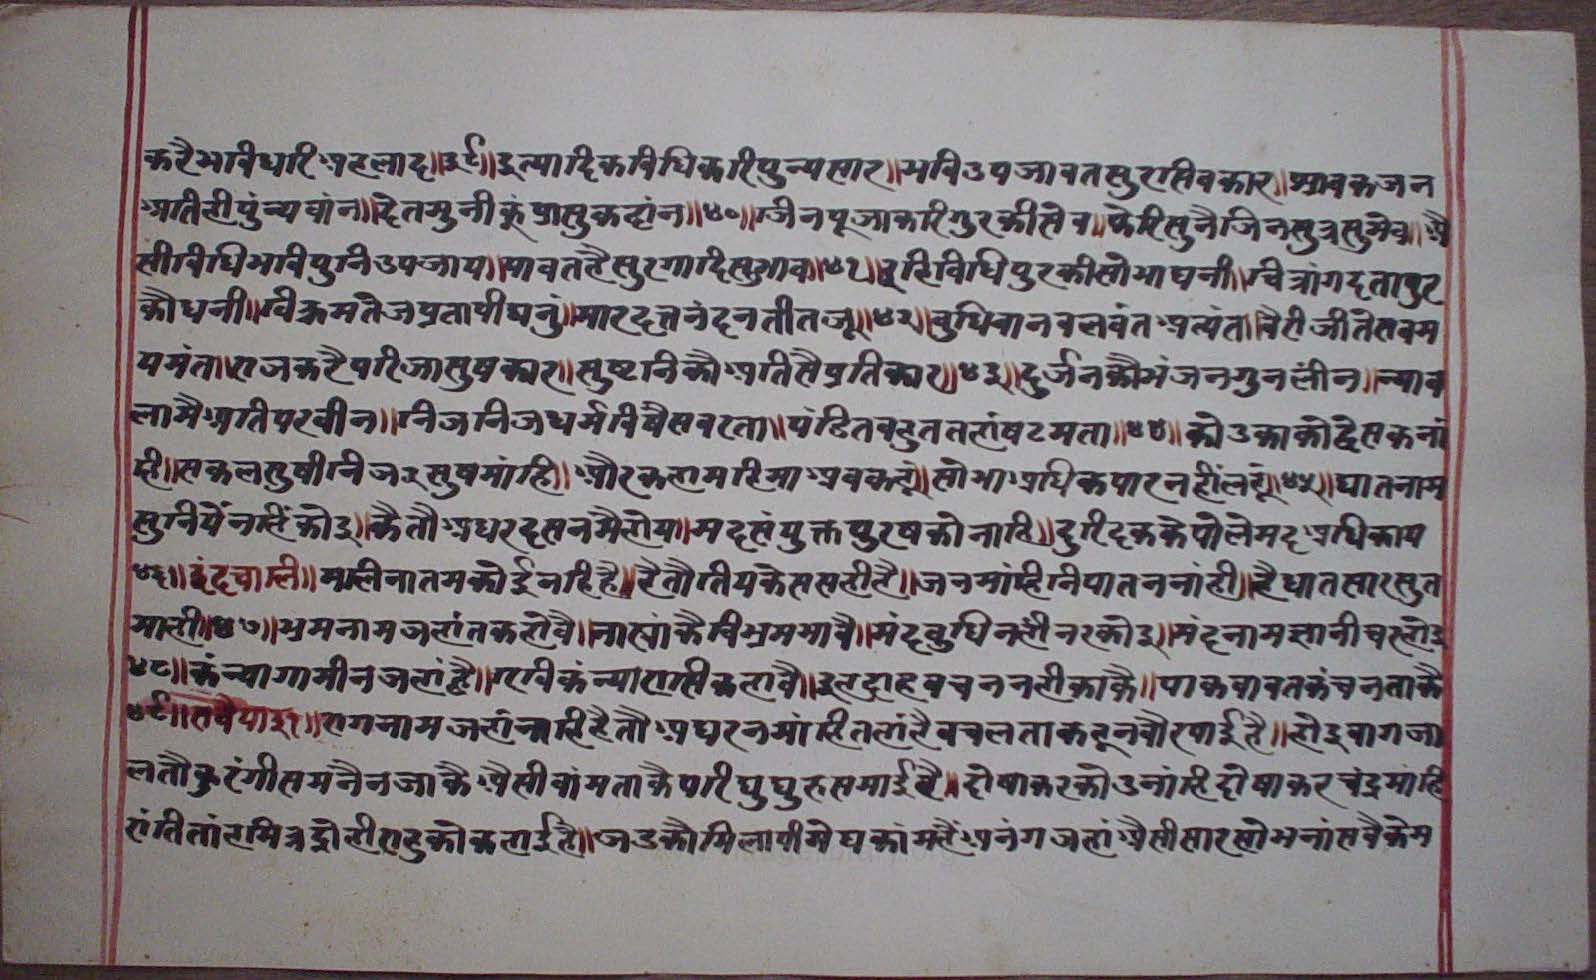 करैभविधरिअहलाद॥३९॥इत्यादिकविधिकरिपुन्यसार॥भविउपजावतसुरगसिवकार॥श्रावकजन
अतिहीपुंन्यवांन॥देतमुनीकूंप्रासुकदांन॥४०॥जिनपूजाकरिगुरकीसेव॥फेरिसुनैजिनसुत्रसुभेव॥अै
सीविधिभविपुनिउपजाय॥पावतहैसुरगादिसुभाव॥४१॥इहिविधिपुरकीसोभाघनी॥चित्रांगदतापुर
कौधनी॥विक्रमतेजप्रतापीघनुं॥मारदत्तनंदनतीतजू॥४२॥बुधिवानबलवंतअत्यंत॥वैरीजीतेसबम
यमंत॥राजकरैपरिजासुषकार॥सुष्टनिकौअतिसैप्रतिकार॥४३॥दुर्जनकौभंजनगुनलींन॥न्याव
लामैअतिपरवीन॥निजनिजधर्मविषैसबरता॥पंडितबहुततहांषटमता॥४४॥कोउकाकोद्वेसकनां
ही॥सकलसुषीनिजरसुषमांहि॥औरकहामहिमाअबकहूं॥सोभाअधिकपारनहींलहूं॥४५॥घातनाम
सुनियेंनहिंकोइ॥कैतौअधरदसनमैहोय॥मदसंयुक्तपुरषकोनाहि॥दुरिदककैपोलेमदअधिकाय
४६॥छंदचाली॥मलीनातमकोईनहिहै॥हैतौतीयकेससहीहै॥जनमांहिनिपातननांही॥हैधातसारसुत
माही॥४७॥भ्रमनामजहांतकहोवै॥नास्यांकैविभ्रमभावै॥मंदबुधिनहीनरकोइ॥मंदनामज्ञानीचहोइ
४८॥कंन्यागामीनजहांहै॥रविकंन्यारासीकहावै॥इहद्राहबचननहीकाकै॥पाकवावतकंचनताकै
४९॥सवैयाइ३१॥रागनामजहांनाहिहैतौअधरनमांहितहांहैवचलताकहूनवौरपाईहै॥होइवागजा
लतौकुरंगीसमनैनजाकैअैसीवांमताकैपरिघुघुरुसमाईवै॥दोषाकरकोउनांहिदोषाकरचंद्रमांहि
रांतितांहमित्रद्रोहीराहुकोकहाईहै॥जडकौमिलापीमेघकांमहैंअनंगजहांअैसीसारसोभनांसबैकेम